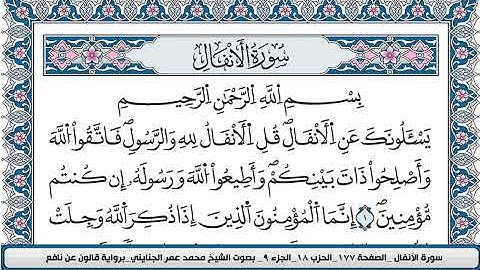 سُورَةُ الْأَنْفَالِ
بِسْمِ اللَّهِ الرَّحْمَٰنِ الرَّحِيمِ
يَسْـَٔلُونَكَ عَنِ الْأَنفَالِ قُلِ الْأَنفَالُ لِلهِ وَالرَّسُولِ فَاتَّقُوا اللَّهَ
وَأَصْلِحُوا ذَاتَ بَيْنِكُمْ وَأَطِيعُوا اللَّهَ وَرَسُولَهُ إِن كُنتُم
مُّؤْمِنِينَ ۝١ إِنَّمَا الْمُؤْمِنُونَ الَّذِينَ إِذَا ذُكِرَ اللَّهُ وَجِلَتْ
سورة الأنفال_ الصفحة ١٧٧_ الحزب ١٨_ الجزء ٩_ بصوت الشيخ محمد عمر الجنايني_ برواية قالون عن نافع